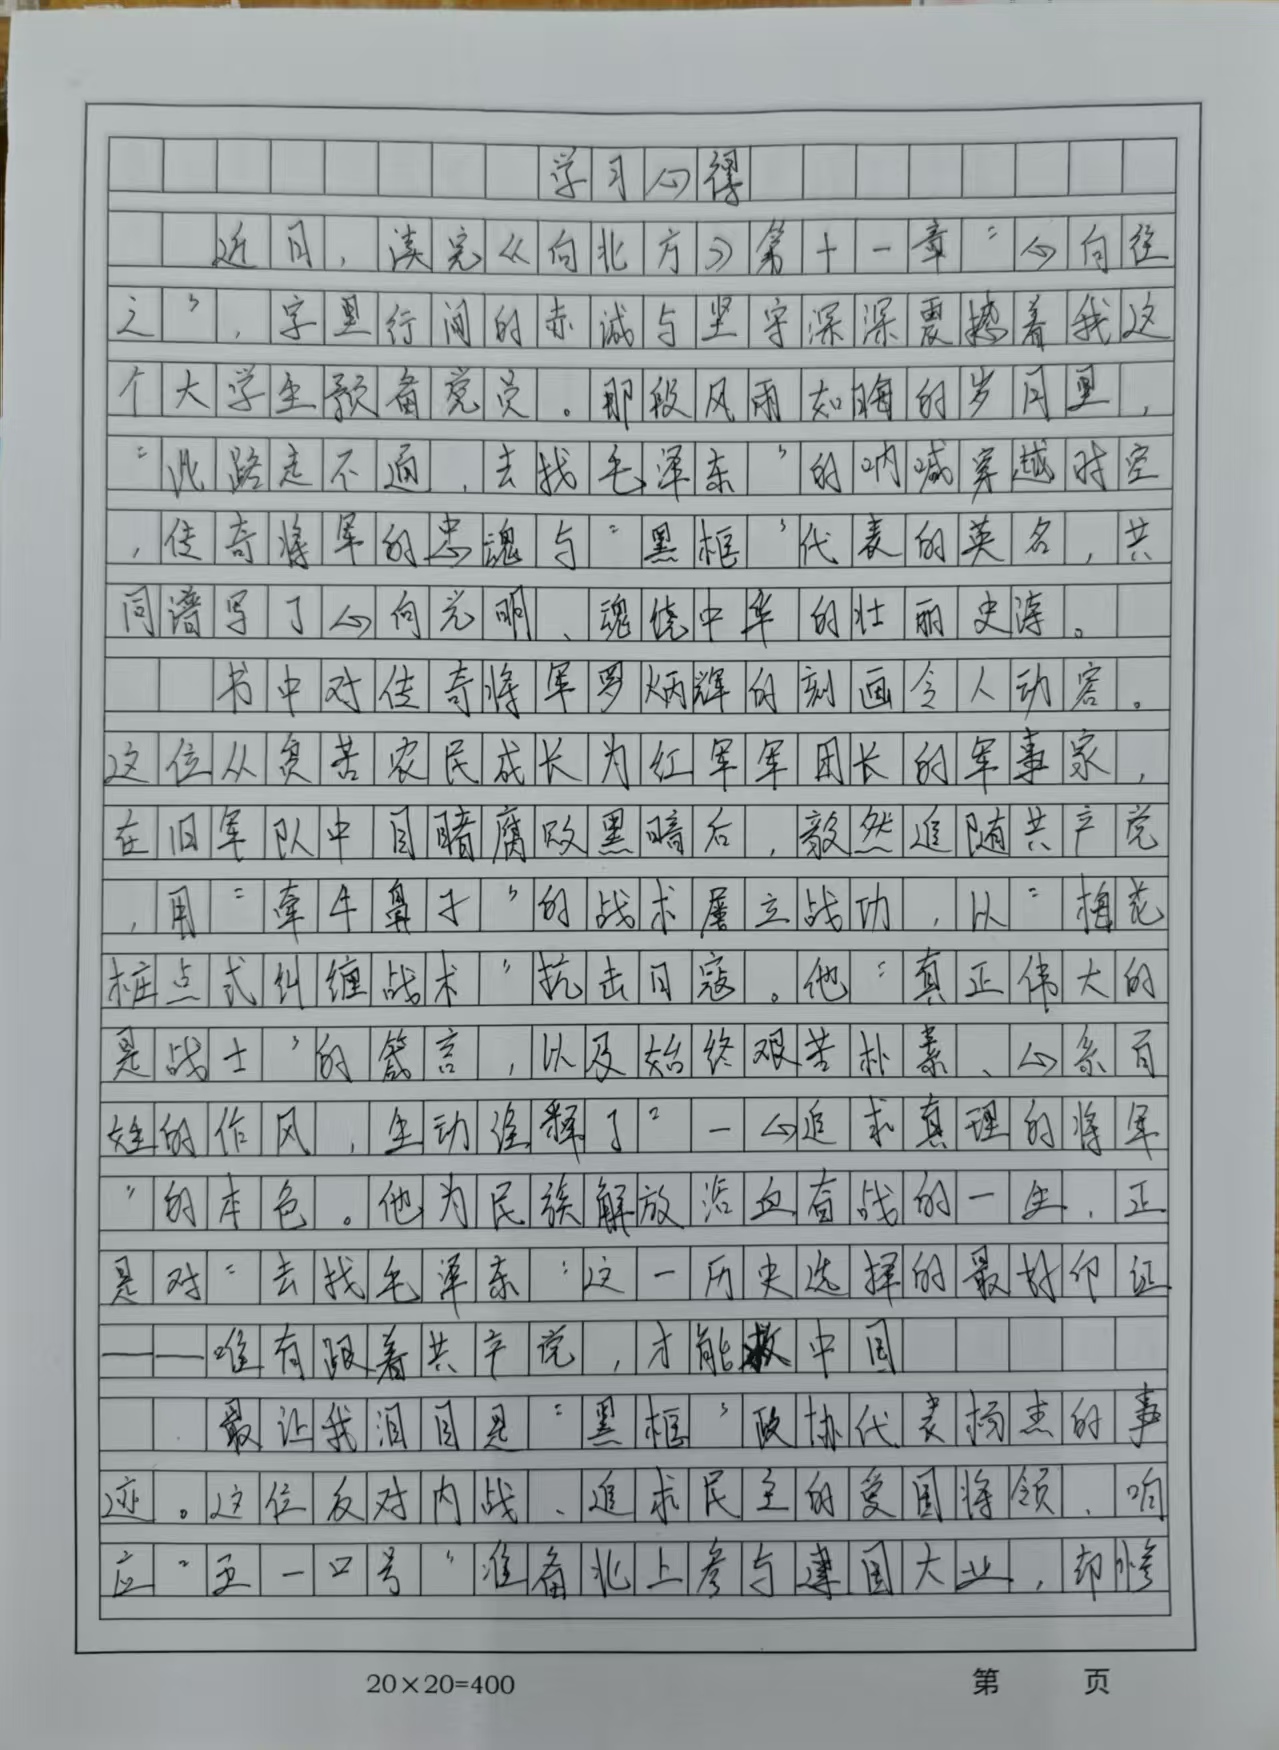 学习心得
近日，读完《向北方》第十一章“心向往
之”，字里行间的赤诚与坚守深深震撼着我这
个大学生预备党员。那段风雨如晦的岁月里，
“此路走不通，去找毛泽东”的呐喊穿越时空
，传奇将军的忠魂与“黑框”代表的英名，共
同谱写了心向光明、魂绕中华的壮丽史诗。
书中对传奇将军罗炳辉的刻画令人动容。
这位从贫苦农民成长为红军军团长的军事家，
在旧军队中目睹腐败黑暗后，毅然追随共产党
，用“牵牛鼻子”的战术屡立战功，以“梅花
桩点式纠缠战术”抗击日寇。他“真正伟大的
是战士”的箴言，以及始终艰苦朴素、心系百
姓的作风，生动诠释了“一心追求真理的将军
”的本色。他为民族解放浴血奋战的一生，正
是对“去找毛泽东”这一历史选择的最好印证
——唯有跟着共产党，才能救中国
最让我泪目是“黑框”政协代表杨杰的事
迹。这位反对内战、追求民主的爱国将领，响
应“五一口号”准备北上参与建国大业，却惨
20×20=400
第 页